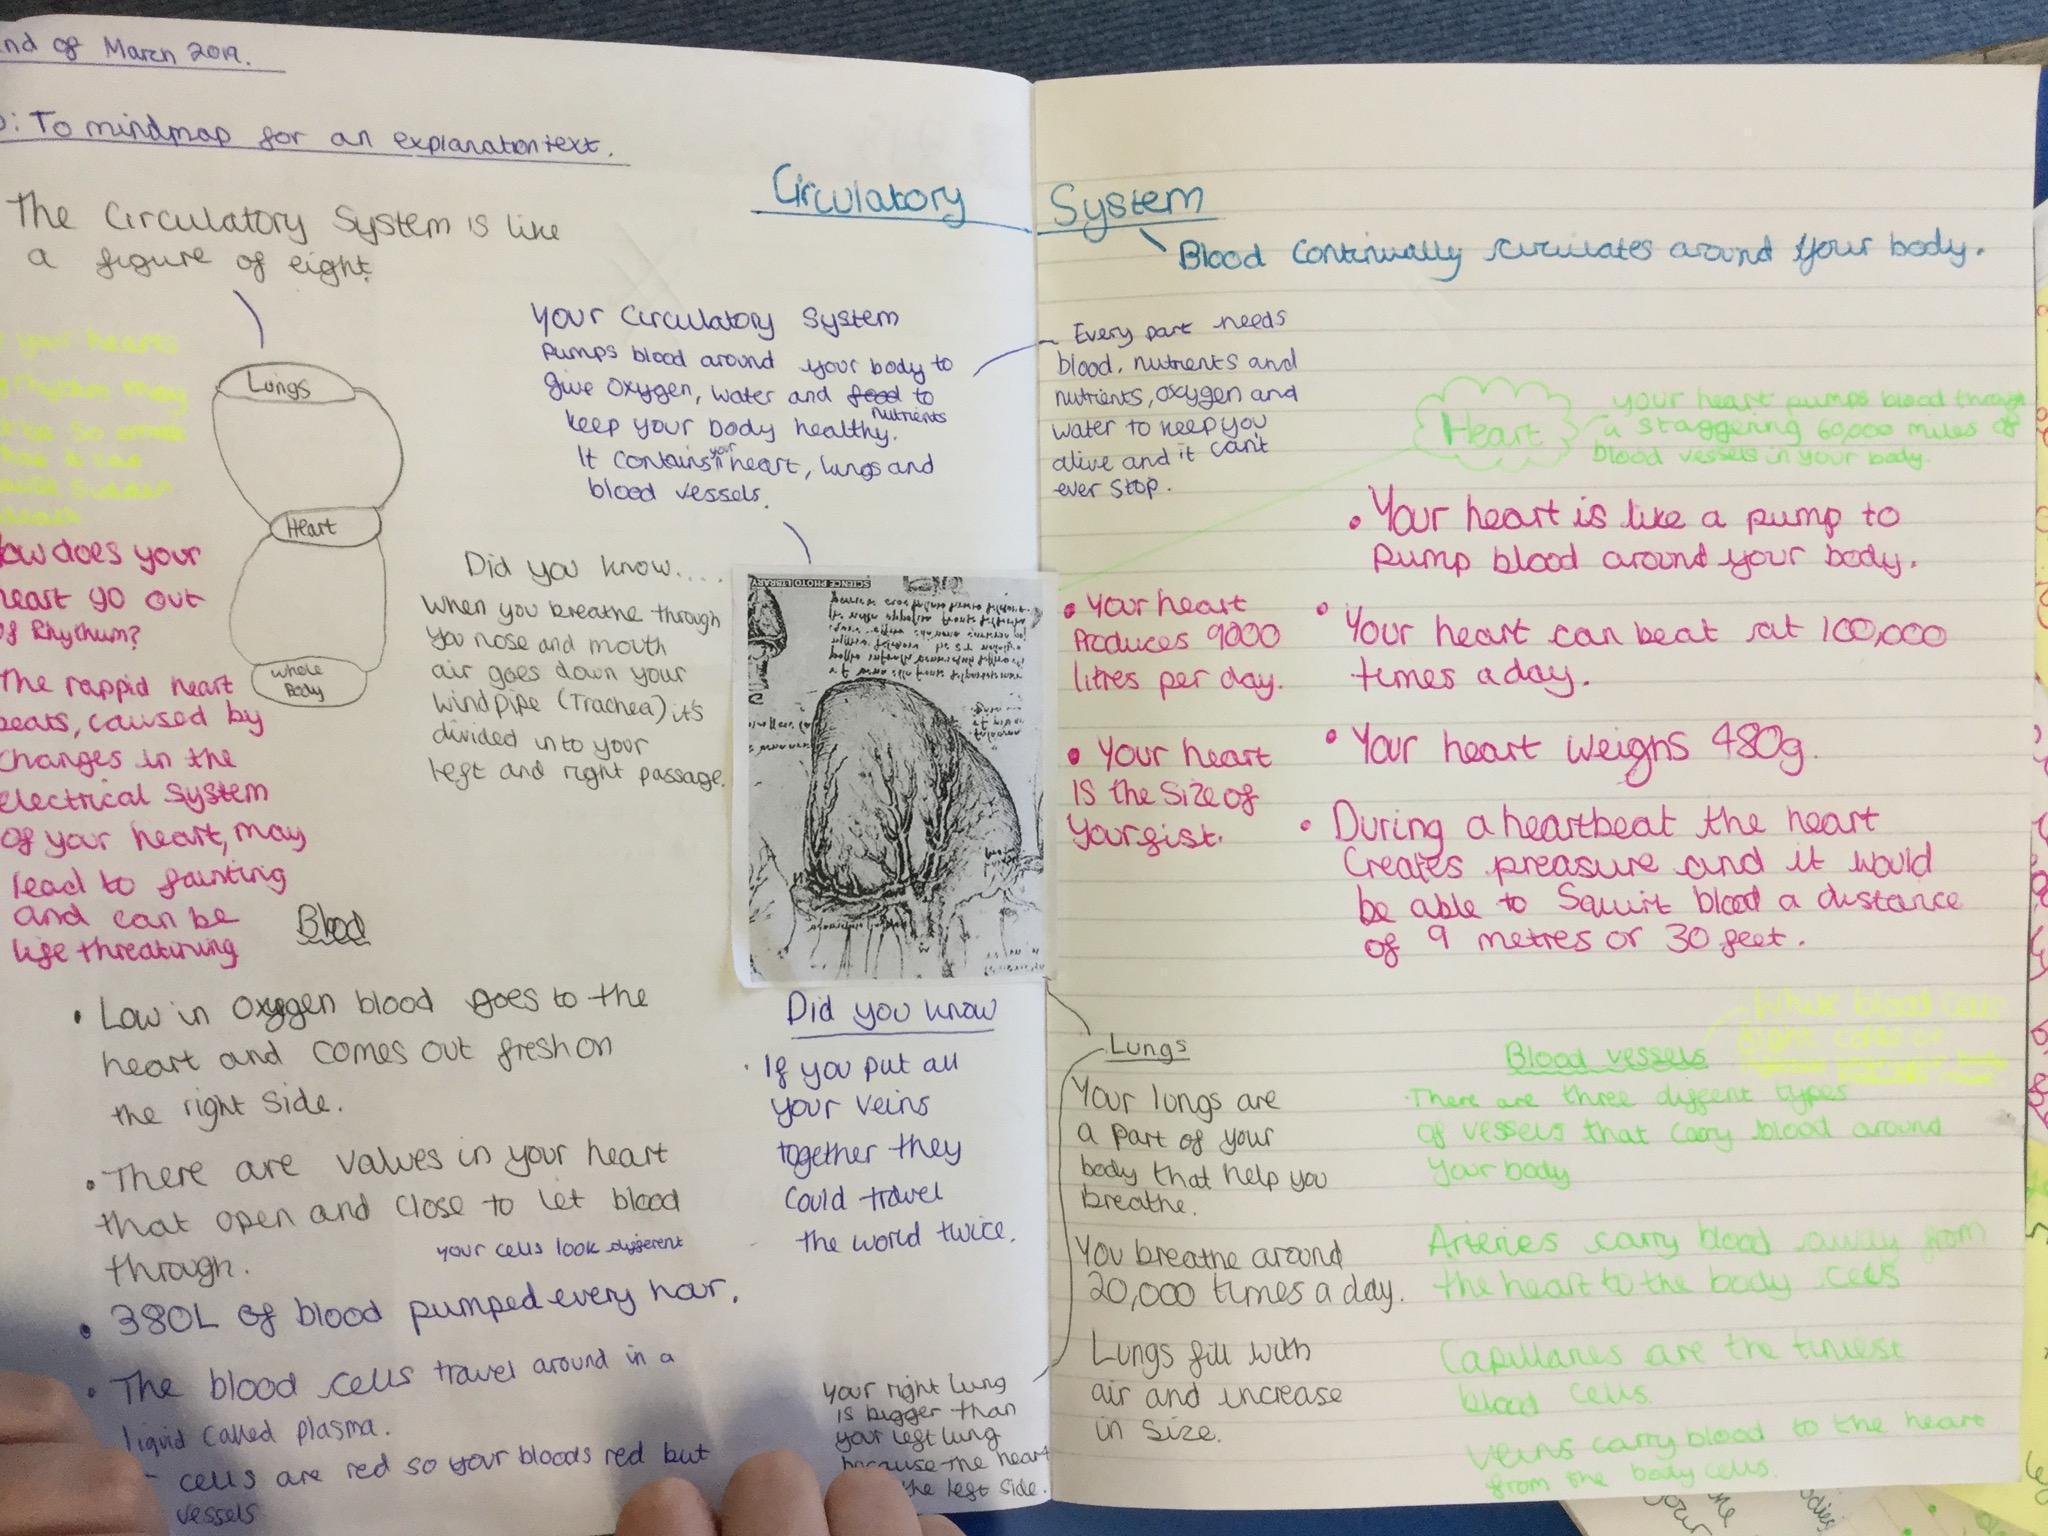 nd of March 2019.
To mindmap for an explanation text.
Circulatory System
Blood continually circulates around your body.
The Circulatory System is like
a figure of eight.
Lungs
Heart
whole
Body
your hearts
Rhythm may
be so
sudden
ow does your
heart go out
of Rhythum?
The rappid heart
beats, caused by
changes in the
electrical system
of your heart, may
lead to fainting
and can be
life threatining
Your Circulatory System
pumps blood around your body to
give oxygen, water and food to
nutrients
keep your body healthy.
your
It contains heart, lungs and
blood vessels.
Every part needs
blood, nutrients and
nutrients, oxygen and
water to keep you
alive and it can't
ever stop.
Did you know....
When you breathe through
you nose and mouth
air goes down your
windpipe (Trachea) it's
divided into your
left and right passage.
SCIENCE PHOTO LIBRARY
Heart
your heart pumps blood through
a staggering 60,000 miles of
blood vessels in your body.
• Your heart is like a pump to
pump blood around your body.
• Your heart
produces 9000
litres per day.
• Your heart can beat at 100,000
times a day.
• Your heart
is the size of
your fist.
• Your heart weighs 480g.
• During a heartbeat the heart
creates preasure and it would
be able to squirt blood a distance
of 9 metres or 30 feet.
Blood
• Low in oxygen blood goes to the
heart and comes out fresh on
the right side.
• There are values in your heart
that open and close to let blood
through.
your cells look different
• 380L of blood pumped every hour.
• The blood cells travel around in a
liquid called plasma.
cells are red so your bloods red but
vessels
Did you know
• If you put all
your veins
together they
could travel
the world twice.
Lungs
Your lungs are
a part of your
body that help you
breathe.
You breathe around
20,000 times a day.
Lungs fill with
air and increase
in size.
your right lung
is bigger than
your left lung
because the heart
the left side.
Blood vessels
White blood cells
fight colds or
There are three diffent types
of vessels that carry blood around
your body
Arteries carry blood away from
the heart to the body cells
Capillaries are the tiniest
blood cells.
Veins carry blood to the heart
from the body cells.